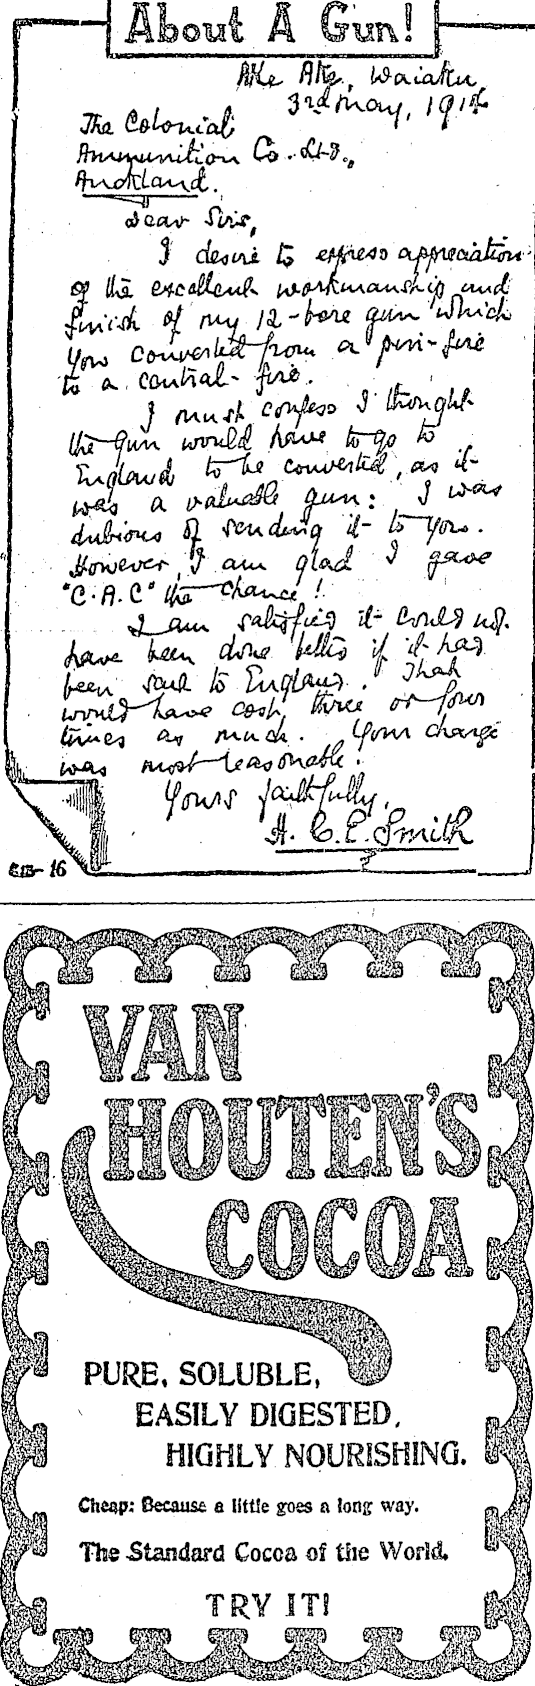 About A Gun!
Ake Ake, Waiaku
3rd May, 1914
The Colonial
Ammunition Co. Ltd.,
Auckland.
Dear Sirs,
I desire to express appreciation
of the excellent workmanship and
finish of my 12-bore gun which
you converted from a pin-fire
to a central-fire.
I must confess I thought
the gun would have to go to
England to be converted, as it
was a valuable gun: I was
dubious of sending it to you.
However, I am glad I gave
"C.A.C" the chance!
I am satisfied it could not
have been done better if it had
been sent to England. That
would have cost three or four
times as much. Your charge
was most reasonable.
Yours faithfully,
H. C. E. Smith
VAN
HOUTEN'S
COCOA
PURE, SOLUBLE,
EASILY DIGESTED,
HIGHLY NOURISHING.
Cheap: Because a little goes a long way.
The Standard Cocoa of the World.
TRY IT!